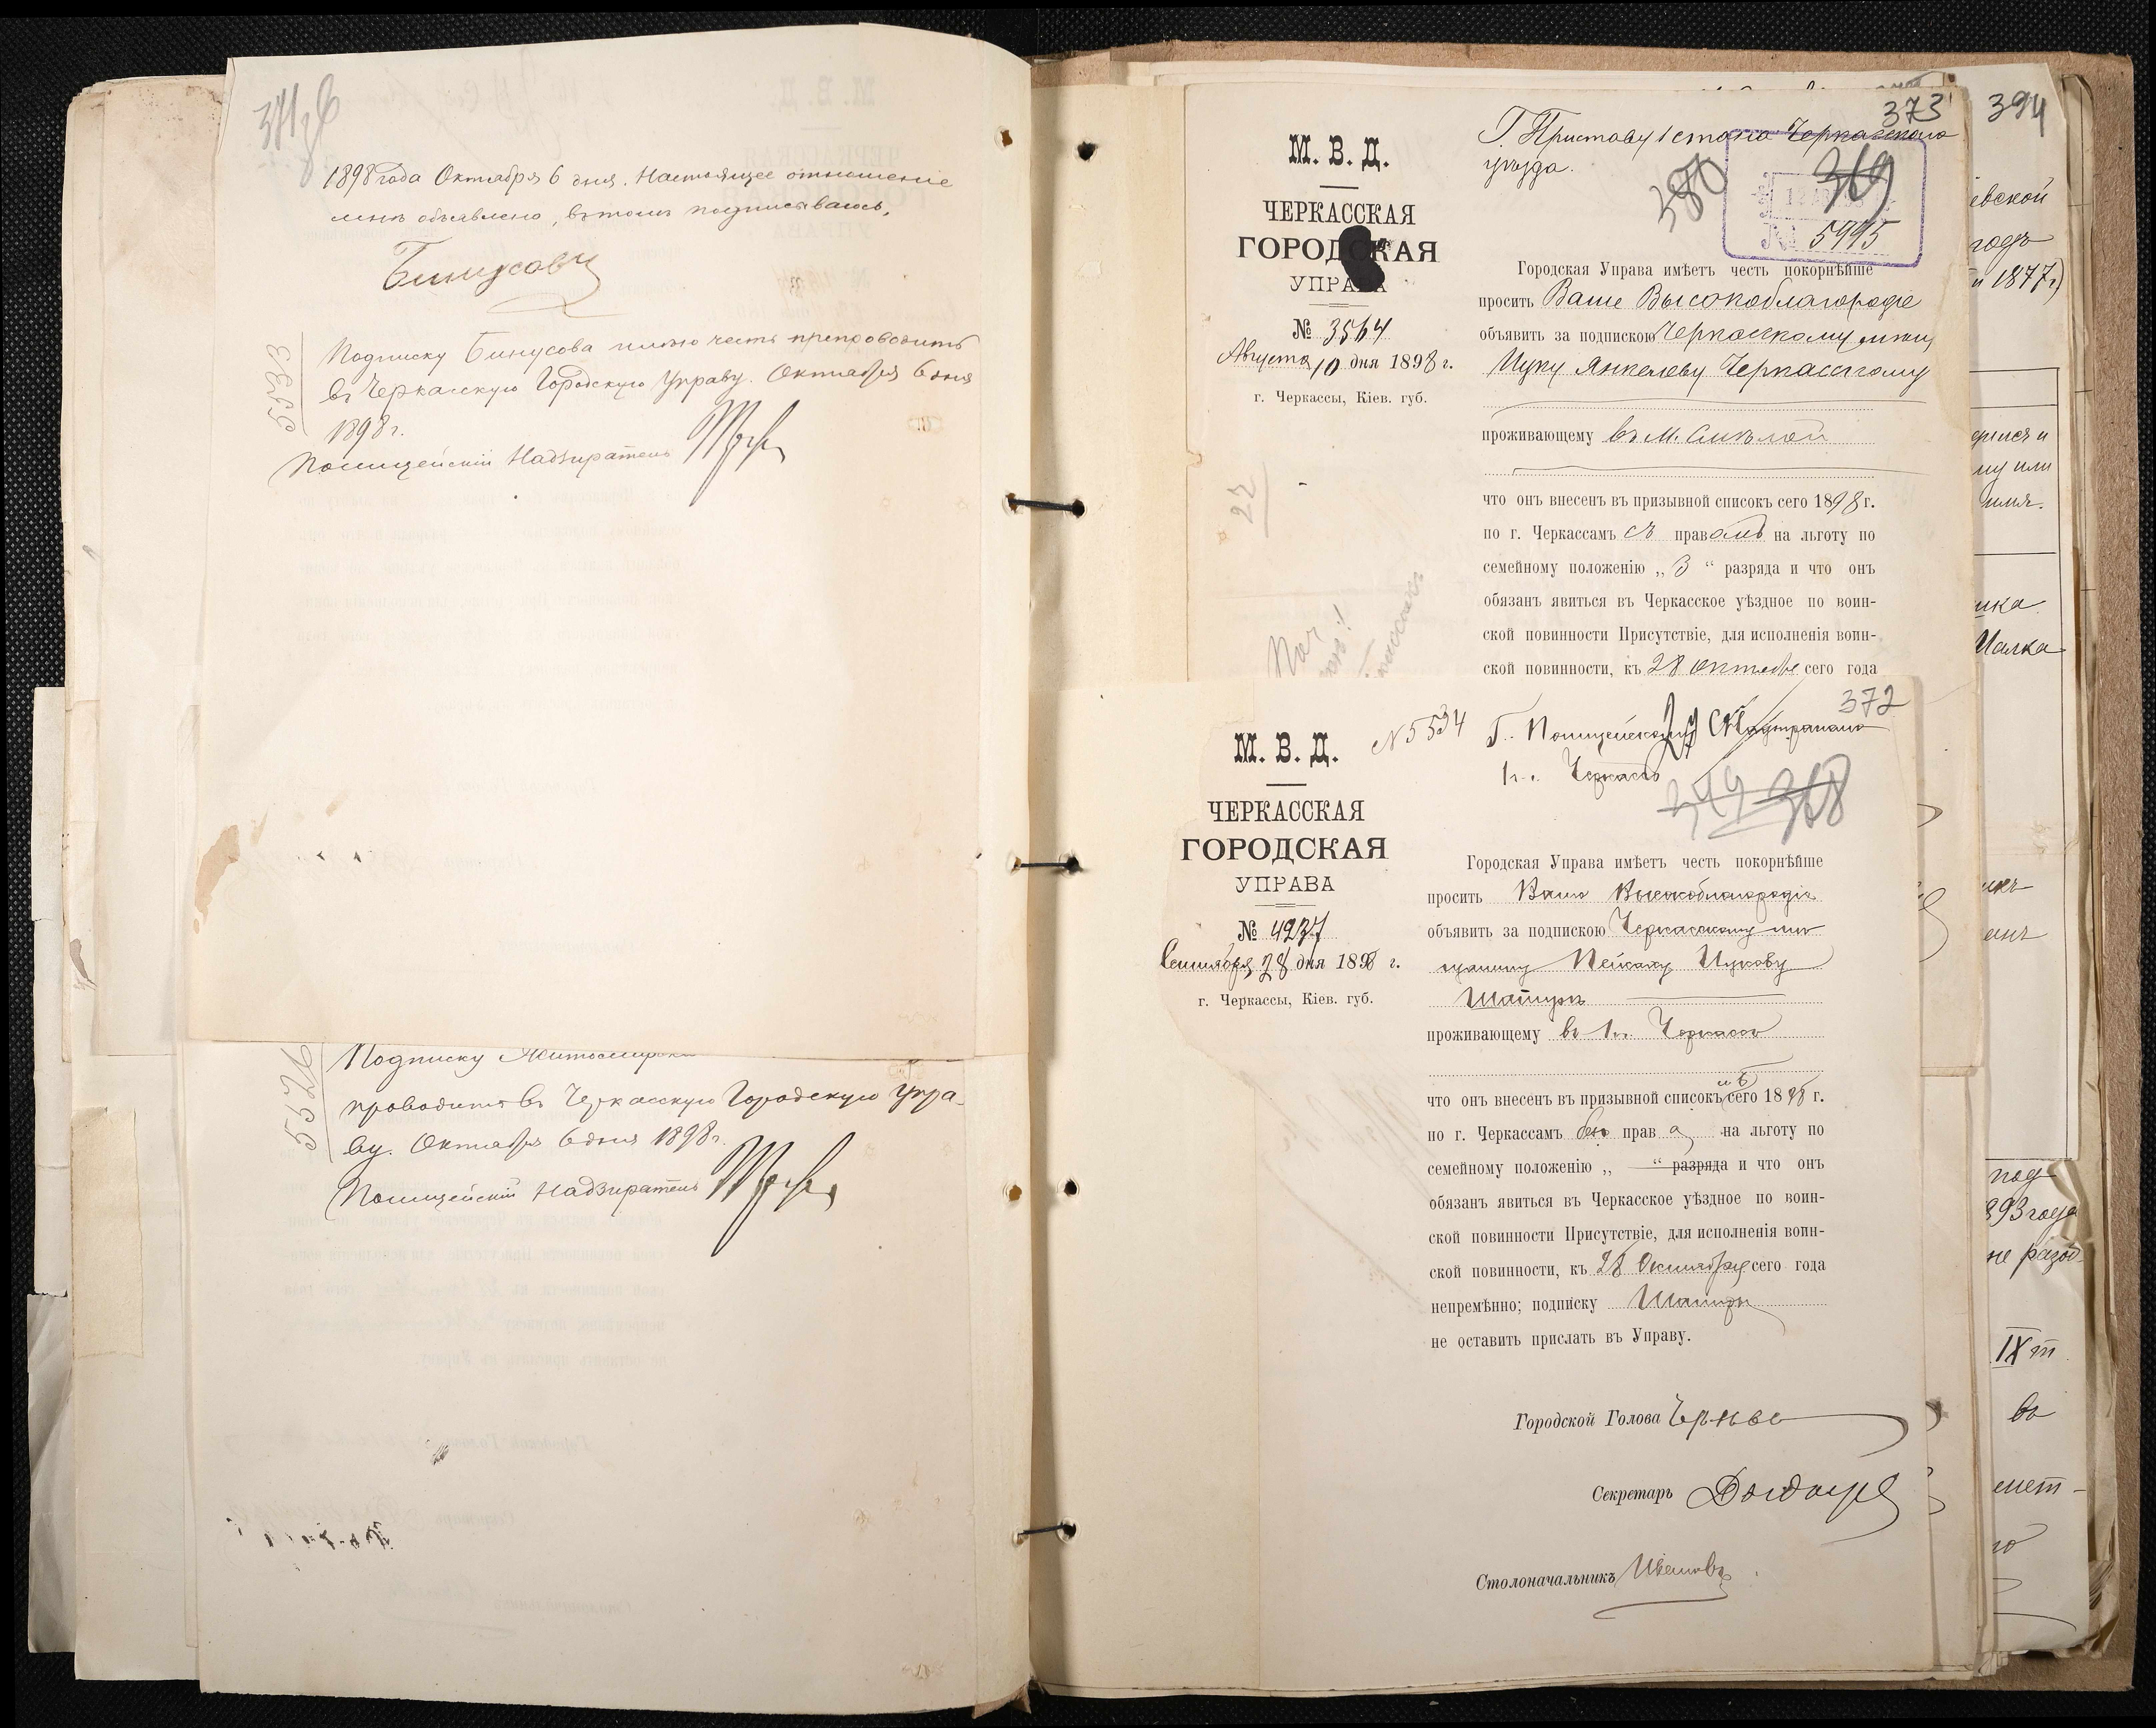 371об
1898 года Октября 6 дня. Настоящее отношение
мнѣ объявлено, въ томъ подписываюсь,
Бинусовъ
5333
Подписку Бинусова имѣю честь препроводить
въ Черкасскую Городскую Управу. Октября 6 дня
1898 г.
Полицейскій Надзиратель
5526
Подписку
проводить въ Черкасскую Городскую Упра-
ву. Октября 6 дня 1898 г.
Полицейскій Надзиратель
373
394
Г. Приставу 1 стана Черкасскаго
уѣзда.
380
369
№ 5995
М. В. Д.
ЧЕРКАССКАЯ
ГОРОДСКАЯ
УПРАВА
№ 3564
Августа 10 дня 1898 г.
г. Черкассы, Кіев. губ.
Городская Управа имѣетъ честь покорнѣйше
просить Ваше Высокоблагородіе
объявить за подпискою Черкасскому мѣщ
Ицку Янкелеву Черкасскому
проживающему въ М. Смѣлой
что онъ внесенъ въ призывной списокъ сего 1898 г.
по г. Черкассамъ съ правомъ на льготу по
семейному положенію „ 3 “ разряда и что онъ
обязанъ явиться въ Черкасское уѣздное по воин-
ской повинности Присутствіе, для исполненія воин-
ской повинности, къ 28 октября сего года
27
372
№ 5534
Г. Полицейскому Надзирателю
г. Черкассъ
379 368
М. В. Д.
ЧЕРКАССКАЯ
ГОРОДСКАЯ
УПРАВА
№ 4237
Сентября 28 дня 1898 г.
г. Черкассы, Кіев. губ.
Городская Управа имѣетъ честь покорнѣйше
просить Ваше Высокоблагородіе
объявить за подпискою Черкасскому мѣ
щанину Пейсаху Ицкову
Шапиръ
проживающему въ г. Черкассъ
что онъ внесенъ въ призывной списокъ сего 1898 г.
по г. Черкассамъ безъ права на льготу по
семейному положенію „ “ разряда и что онъ
обязанъ явиться въ Черкасское уѣздное по воин-
ской повинности Присутствіе, для исполненія воин-
ской повинности, къ 28 Октября сего года
непремѣнно; подписку Шапиры
не оставить прислать въ Управу.
Городской Голова
Секретарь
Столоначальникъ
евской
годъ
1877 г)
или
Малка
под
893 года
не разод-
IX т
въ